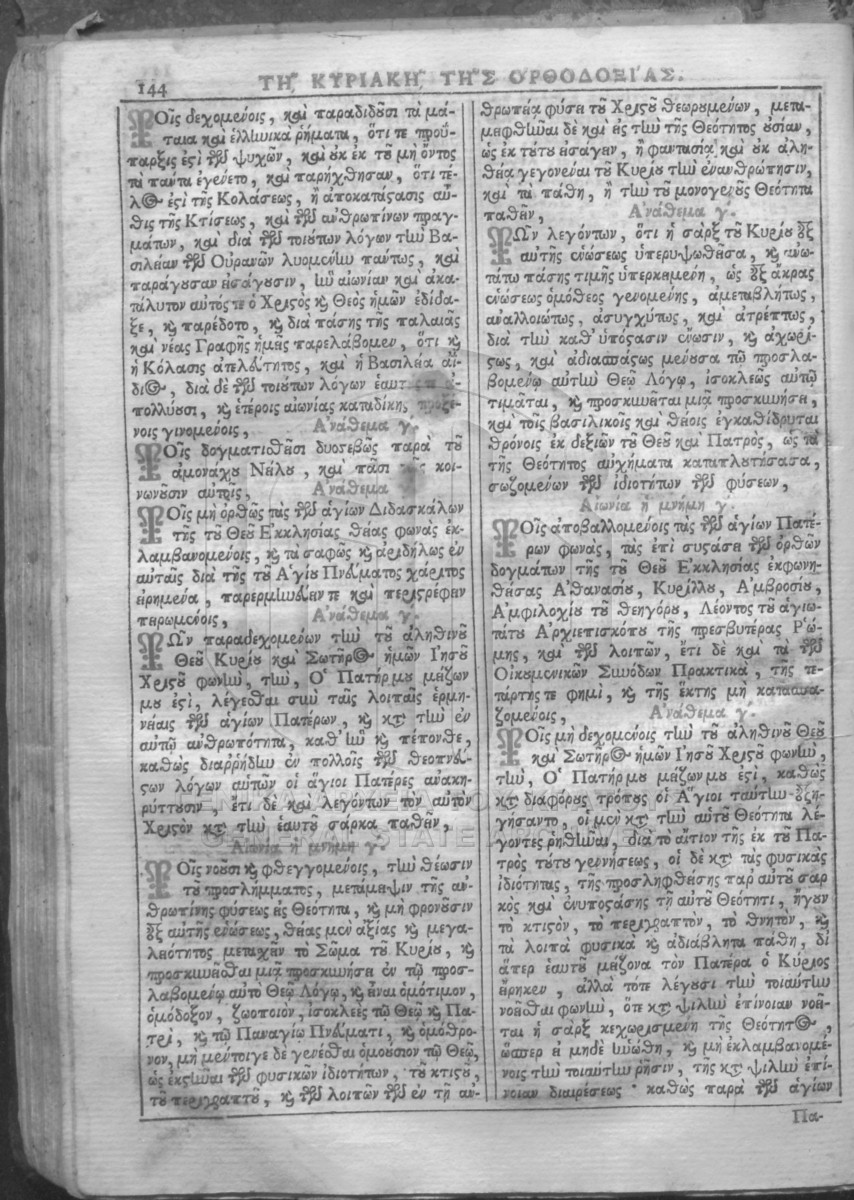 144 ΤΗ͂, ΚΥΡΙΑΚΗ͂, ΤΗ͂Σ ΟΡΘΟΔΟΞΊΑΣ.
Τοῖς δεχομένοις, καὶ παραδιδοῦσι τὰ μά-
ταια καὶ ἑλληνικὰ ῥήματα, ὅτι τε προΰ-
παρξις ἐστὶ τῶν ψυχῶν, καὶ οὐκ ἐκ τοῦ μὴ ὄντος
τὰ πάντα ἐγένετο, καὶ παρήχθησαν, ὅτι τέ-
λος ἐστὶ τῆς Κολάσεως, ἢ ἀποκατάστασις αὖ-
θις τῆς Κτίσεως, καὶ τῶν ἀνθρωπίνων πραγ-
μάτων, καὶ διὰ τῶν τοιούτων λόγων τὴν Βα-
σιλείαν τῶν Οὐρανῶν λυομένην πάντως, καὶ
παράγουσαν εἰσάγουσιν, ἣν αἰωνίαν καὶ ἀκα-
τάλυτον αὐτός τε ὁ Χριστὸς καὶ Θεὸς ἡμῶν ἐδίδα-
ξε, καὶ παρέδοτο, καὶ διὰ πάσης τῆς παλαιᾶς
καὶ νέας Γραφῆς ἡμεῖς παρελάβομεν, ὅτι καὶ
ἡ Κόλασις ἀτελεύτητος, καὶ ἡ Βασιλεία ἀΐ-
διος, διὰ δὲ τῶν τοιούτων λόγων ἑαυτούς τε ἀ-
πολλύουσι, καὶ ἑτέροις αἰωνίας καταδίκης προξέ-
νοις γινομένοις, Ἀνάθεμα γ΄.
Τοῖς δογματισθεῖσι δυσσεβῶς παρὰ τοῦ
ἀμονάχου Νείλου, καὶ πᾶσι τοῖς κοι-
νωνοῦσιν αὐτοῖς, Ἀνάθεμα
Τοῖς μὴ ὀρθῶς τὰς τῶν ἁγίων Διδασκάλων
τῆς τοῦ Θεοῦ Ἐκκλησίας θείας φωνὰς ἐκ-
λαμβανομένοις, καὶ τὰ σαφῶς καὶ ἀριδήλως ἐν
αὐταῖς διὰ τῆς τοῦ Ἁγίου Πνεύματος χάριτος
εἰρημένα, παρερμηνεύειν τε καὶ περιστρέφειν
πειρωμένοις, Ἀνάθεμα γ΄.
Τῶν παραδεχομένων τὴν τοῦ ἀληθινοῦ
Θεοῦ Κυρίου καὶ Σωτῆρος ἡμῶν Ἰησοῦ
Χριστοῦ φωνὴν, τὴν, Ὁ Πατήρ μου μείζων
μου ἐστὶ, λέγεσθαι σὺν ταῖς λοιπαῖς ἑρμη-
νείαις τῶν ἁγίων Πατέρων, καὶ κατὰ τὴν ἐν
αὐτῷ ἀνθρωπότητα, καθ' ἣν καὶ πέπονθε,
καθὼς διαῤῥήδην ἐν πολλοῖς τῶν θεοπνεύ-
στων λόγων αὐτῶν οἱ ἅγιοι Πατέρες ἀνακη-
ρύττουσιν, ἔτι δὲ καὶ λεγόντων τὸν αὐτὸν
Χριστὸν κατὰ τὴν ἑαυτοῦ σάρκα παθεῖν,
Αἰωνία ἡ μνήμη γ΄.
Τοῖς νοοῦσι καὶ φθεγγομένοις, τὴν θέωσιν
τοῦ προσλήμματος, μετάμειψιν τῆς ἀν-
θρωπίνης φύσεως εἰς Θεότητα, καὶ μὴ φρονοῦσιν
ἐξ αὐτῆς ἑνώσεως, θείας μὲν ἀξίας καὶ μεγα-
λειότητος μετασχεῖν τὸ Σῶμα τοῦ Κυρίου, καὶ
προσκυνεῖσθαι μιᾷ προσκυνήσει ἐν τῷ προσ-
λαβομένῳ αὐτὸ Θεῷ Λόγῳ, καὶ εἶναι ὁμότιμον,
ὁμόδοξον, ζωοποιὸν, ἰσοκλεὲς τῷ Θεῷ καὶ Πα-
τρὶ, καὶ τῷ Παναγίῳ Πνεύματι, καὶ ὁμόθρο-
νον, μὴ μέντοιγε δὲ γενέσθαι ὁμοούσιον τῷ Θεῷ,
ὡς ἐκστῆναι τῶν φυσικῶν ἰδιοτήτων, τοῦ κτιστοῦ,
τοῦ περιγραπτοῦ, καὶ τῶν λοιπῶν τῶν ἐν τῇ ἀν-
θρωπείᾳ φύσει τοῦ Χριστοῦ θεωρουμένων, μετα-
μειφθῆναι δὲ καὶ εἰς τὴν τῆς Θεότητος οὐσίαν,
ὡς ἐκ τούτου εἰσάγειν, ἢ φαντασίᾳ καὶ οὐκ ἀλη-
θείᾳ γεγονέναι τοῦ Κυρίου τὴν ἐνανθρώπησιν,
καὶ τὰ πάθη, ἢ τὴν τοῦ μονογενοῦς Θεότητα
παθεῖν, Ἀνάθεμα γ΄.
Τῶν λεγόντων, ὅτι ἡ σὰρξ τοῦ Κυρίου ἐξ
αὐτῆς ἑνώσεως ὑπερυψωθεῖσα, καὶ ἀνω-
τάτω πάσης τιμῆς ὑπερκειμένη, ὡς ἐξ ἄκρας
ἑνώσεως ὁμόθεος γενομένης, ἀμεταβλήτως,
ἀναλλοιώτως, ἀσυγχύτως, καὶ ἀτρέπτως,
διὰ τὴν καθ' ὑπόστασιν ἕνωσιν, καὶ ἀχωρί-
στως, καὶ ἀδιασπάστως μένουσα τῷ προσλα-
βομένῳ αὐτὴν Θεῷ Λόγῳ, ἰσοκλεῶς αὐτῷ
τιμᾶται, καὶ προσκυνεῖται μιᾷ προσκυνήσει,
καὶ τοῖς βασιλικοῖς καὶ θείοις ἐγκαθίδρυται
θρόνοις ἐκ δεξιῶν τοῦ Θεοῦ καὶ Πατρὸς, ὡς τὰ
τῆς Θεότητος αὐχήματα καταπλουτήσασα,
σωζομένων τῶν ἰδιοτήτων τῶν φύσεων,
Αἰωνία ἡ μνήμη γ΄.
Τοῖς ἀποβαλλομένοις τὰς τῶν ἁγίων Πατέ-
ρων φωνὰς, τὰς ἐπὶ συστάσει τῶν ὀρθῶν
δογμάτων τῆς τοῦ Θεοῦ Ἐκκλησίας ἐκφωνη-
θείσας Ἀθανασίου, Κυρίλλου, Ἀμβροσίου,
Ἀμφιλοχίου τοῦ θεηγόρου, Λέοντος τοῦ ἁγιω-
τάτου Ἀρχιεπισκόπου τῆς πρεσβυτέρας Ῥώ-
μης, καὶ τῶν λοιπῶν, ἔτι δὲ καὶ τὰ τῶν
Οἰκουμενικῶν Συνόδων Πρακτικὰ, τῆς τε-
τάρτης τε φημὶ, καὶ τῆς ἕκτης μὴ κατασπα-
ζομένοις, Ἀνάθεμα γ΄.
Τοῖς μὴ δεχομένοις τὴν τοῦ ἀληθινοῦ Θεοῦ
καὶ Σωτῆρος ἡμῶν Ἰησοῦ Χριστοῦ φωνὴν,
τὴν, Ὁ Πατήρ μου μείζων μου ἐστὶ, καθὼς
κατὰ διαφόρους τρόπους οἱ Ἅγιοι ταύτην ἐξη-
γήσαντο, οἱ μὲν κατὰ τὴν αὐτοῦ Θεότητα λέ-
γοντες ῥηθῆναι, διὰ τὸ αἴτιον τῆς ἐκ τοῦ Πα-
τρὸς τούτου γεννήσεως, οἱ δὲ κατὰ τὰς φυσικὰς
ἰδιότητας, τῆς προσληφθείσης παρ' αὐτοῦ σαρ
κὸς καὶ ἐνυποστάσης τῇ αὐτοῦ Θεότητι, ἤγουν
τὸ κτιστὸν, τὸ περιγραπτὸν, τὸ θνητὸν, καὶ
τὰ λοιπὰ φυσικὰ καὶ ἀδιάβλητα πάθη, δι'
ἅπερ ἑαυτοῦ μείζονα τὸν Πατέρα ὁ Κύριος
εἴρηκεν, ἀλλὰ τότε λέγουσι τὴν τοιαύτην
νοεῖσθαι φωνὴν, ὅτε κατὰ ψιλὴν ἐπίνοιαν νοεῖ-
ται ἡ σὰρξ κεχωρισμένη τῆς Θεότητος,
ὥσπερ εἰ μηδὲ ἡνώθη, καὶ μὴ ἐκλαμβανομέ-
νοις τὴν τοιαύτην ῥῆσιν, τῆς κατὰ ψιλὴν ἐπί-
νοιαν διαιρέσεως· καθὼς παρὰ τῶν ἁγίων
Πα-